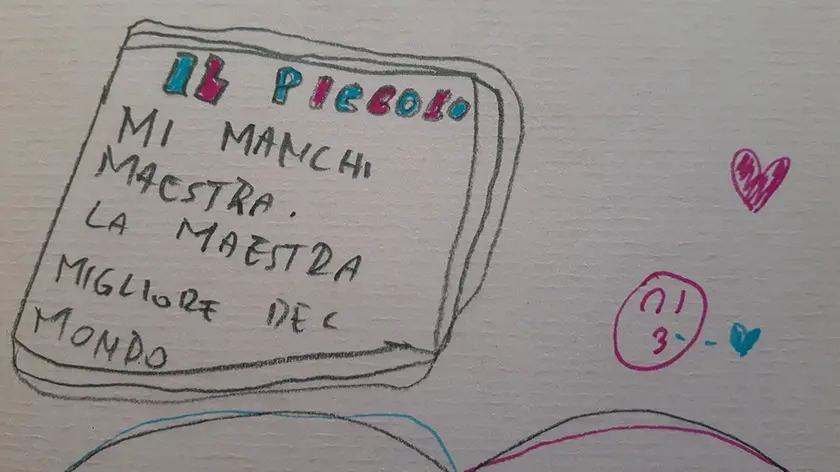 IL PICCOLO
MI MANCHI
MAESTRA.
LA MAESTRA
MIGLIORE DEL
MONDO